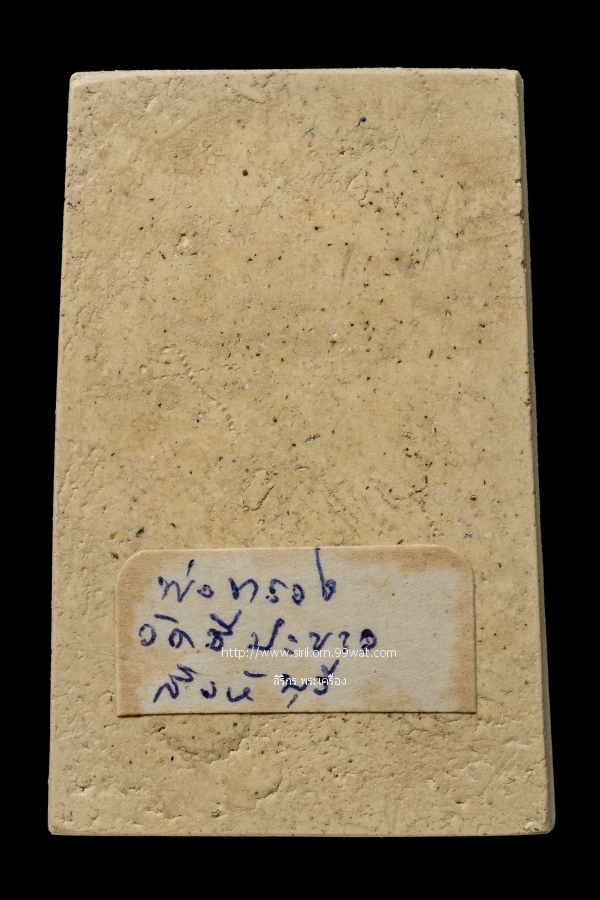 พ่อทรวง
วัดชีปะขาว
http://www.sirikorn.99wat.com
สิริกร พระเครื่อง
สิงห์บุรี